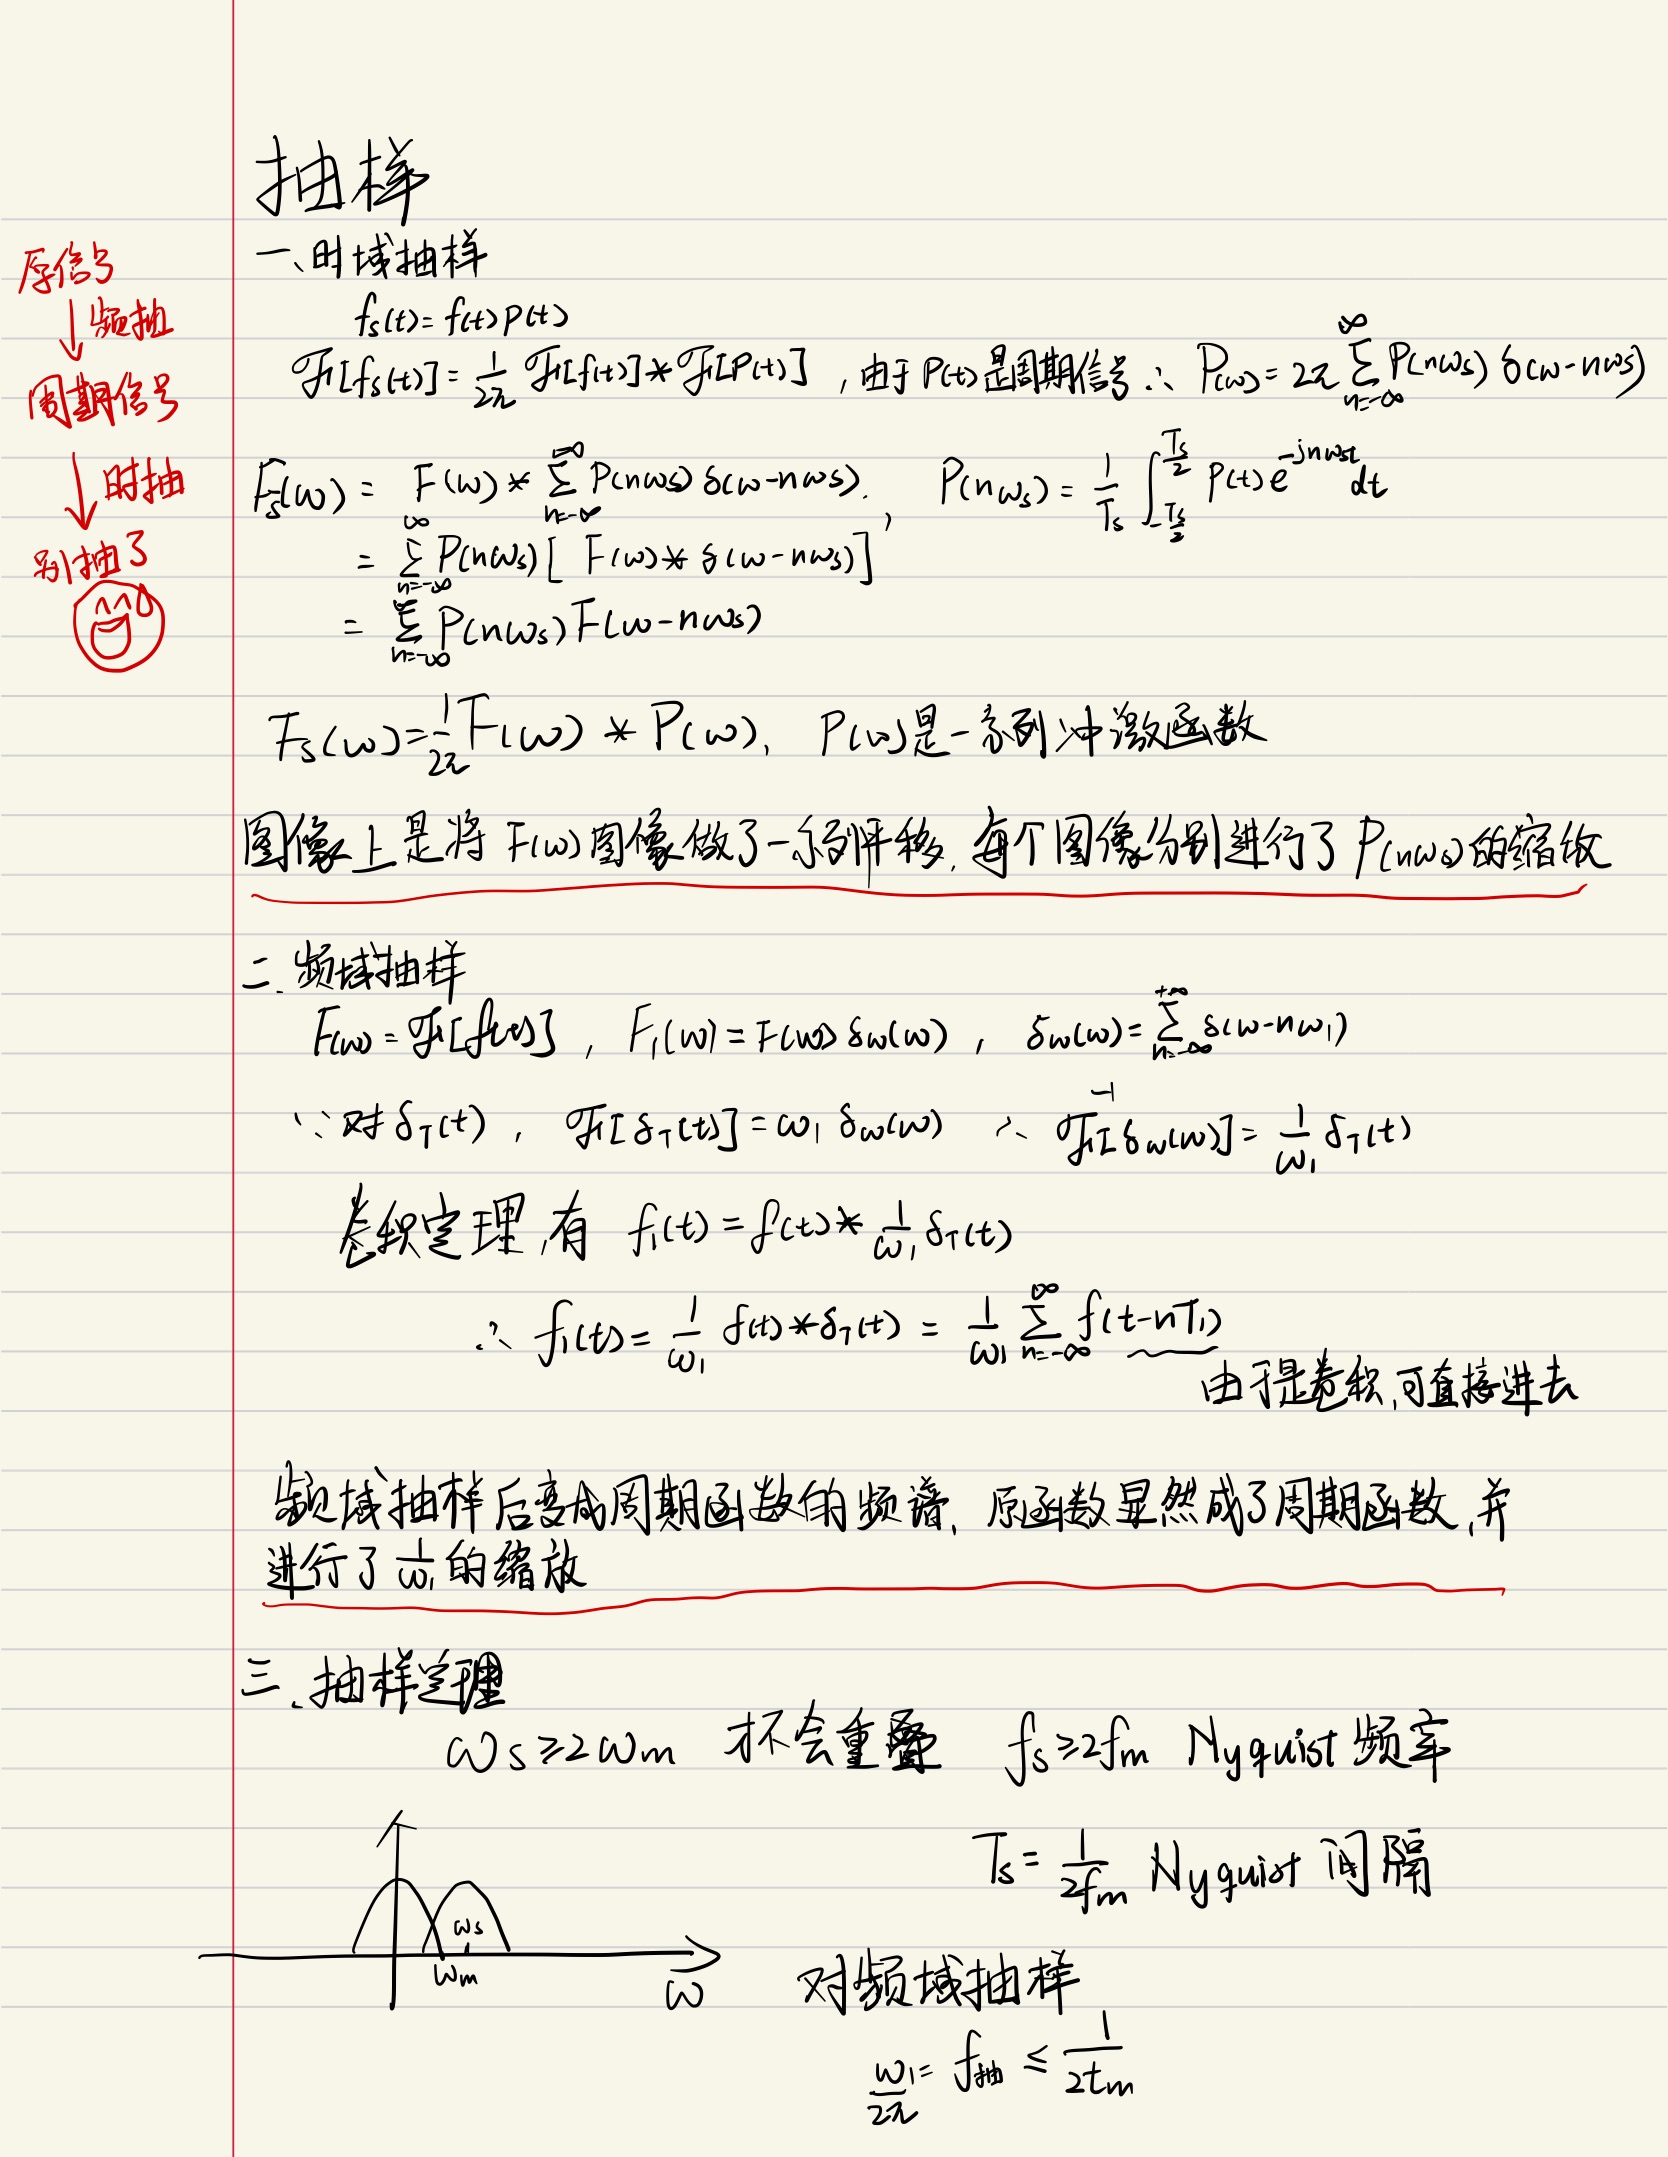 抽样
一、时域抽样
fs(t)=f(t)p(t)
ℱ[fs(t)]=1/2π ℱ[f(t)]*ℱ[P(t)],由于P(t)是周期信号∴ P(ω)=2π ∑_{n=-∞}^{∞} P(nωs) δ(ω-nωs)
Fs(ω)= F(ω)* ∑_{n=-∞}^{∞} P(nωs) δ(ω-nωs), P(nωs)= 1/Ts ∫_{-Ts/2}^{Ts/2} P(t)e^{-jnωst}dt
= ∑_{n=-∞}^{∞} P(nωs)[ F(ω)* δ(ω-nωs)]
= ∑_{n=-∞}^{∞} P(nωs)F(ω-nωs)
Fs(ω)=1/2π F(ω) * P(ω), P(ω)是一系列冲激函数
图像上是将F(ω)图像做了一系列平移,每个图像分别进行了P(nωs)的缩放
原信号
↓频抽
周期信号
↓时抽
别抽了
二.频域抽样
F(ω)=ℱ[f(t)], F₁(ω)=F(ω)δω(ω), δω(ω)=∑_{n=-∞}^{+∞} δ(ω-nω₁)
∵对δT(t), ℱ[δT(t)]=ω₁ δω(ω) ∴ ℱ⁻¹[δω(ω)]= 1/ω₁ δT(t)
卷积定理,有 f₁(t)=f(t)* 1/ω₁ δT(t)
∴ f₁(t)= 1/ω₁ f(t)*δT(t) = 1/ω₁ ∑_{n=-∞}^{∞} f(t-nT₁)
由于是卷积,可直接进去
频域抽样后变成周期函数的频谱,原函数显然成了周期函数,并
进行了1/ω₁的缩放
三.抽样定理
ωs≥2ωm 才不会重叠 fs≥2fm Nyquist频率
Ts= 1/2fm Nyquist间隔
ωs
ωm
ω
对频域抽样
ω₁/2π = f抽 ≤ 1/2tm